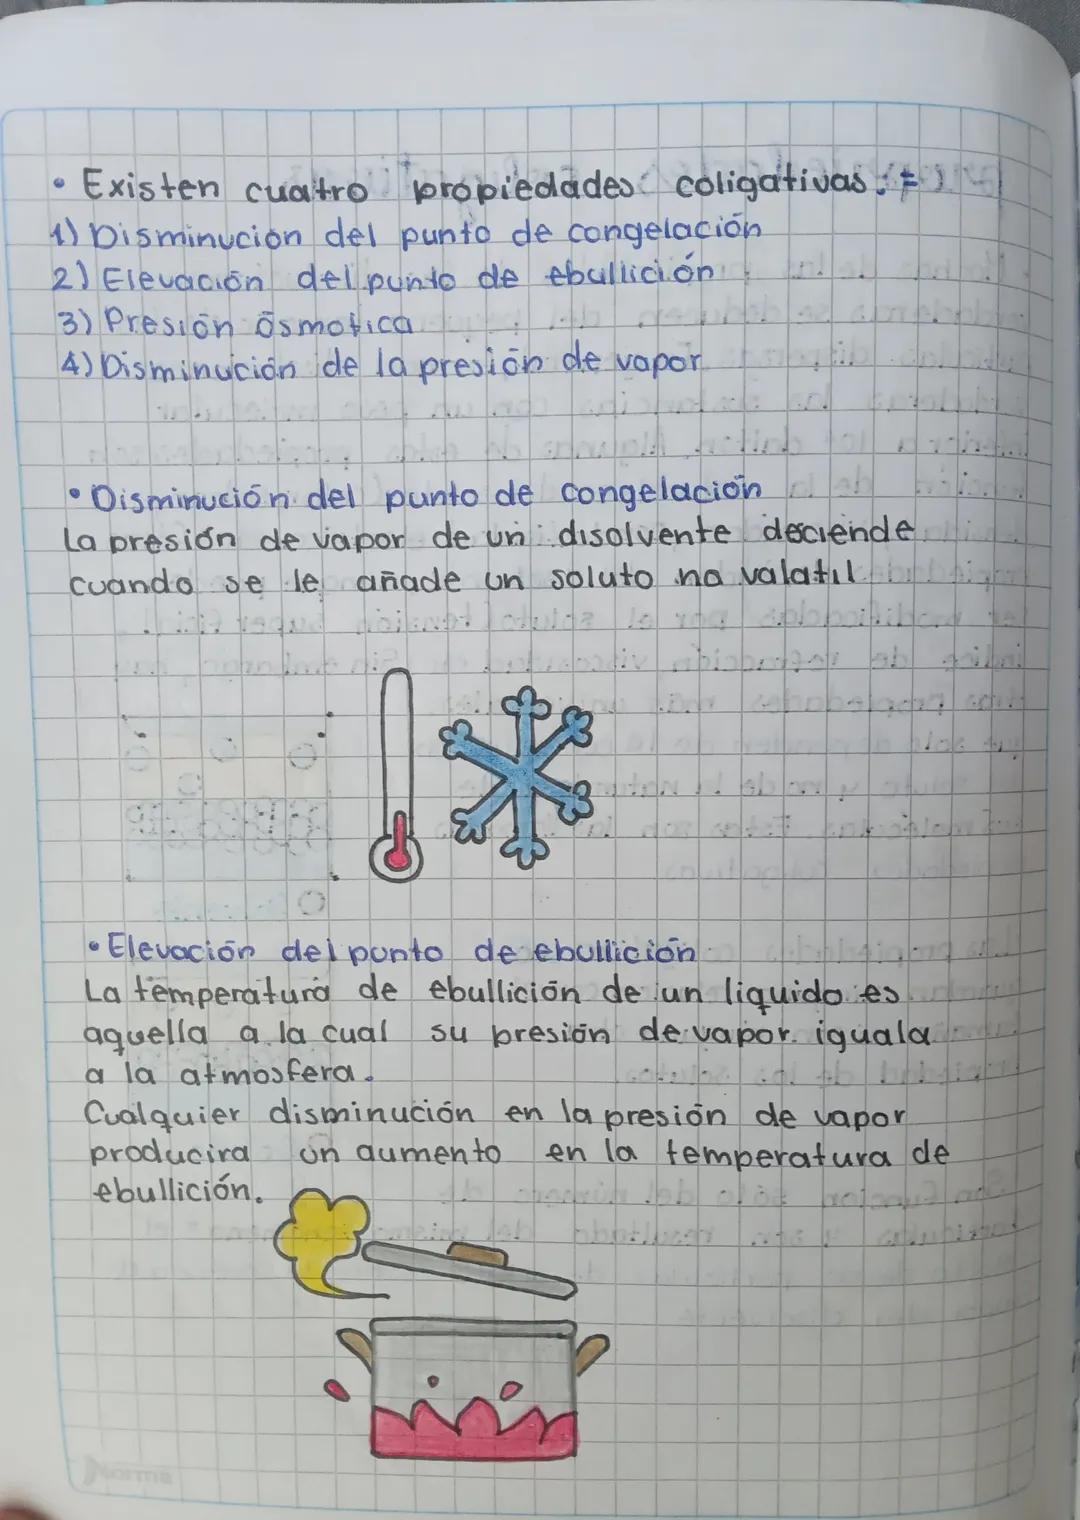 • Existen cuatro propiedades coligativas:
1) Disminución del punto de congelación
2) Elevación del punto de ebullición
3) Presión Ósmotica
4) Disminución de la presión de vapor
• Disminución del punto de congelación
La presión de vapor de un disolvente deciende
cuando se le añade un soluto no valatil
• Elevación del punto de ebullición
La temperatura de ebullición de un liquido es
aquella a la cual su presión de vapor iguala
a la atmosfera.
Cualquier disminución en la presión de vapor
producira un aumento en la temperatura de
ebullición.
Norma